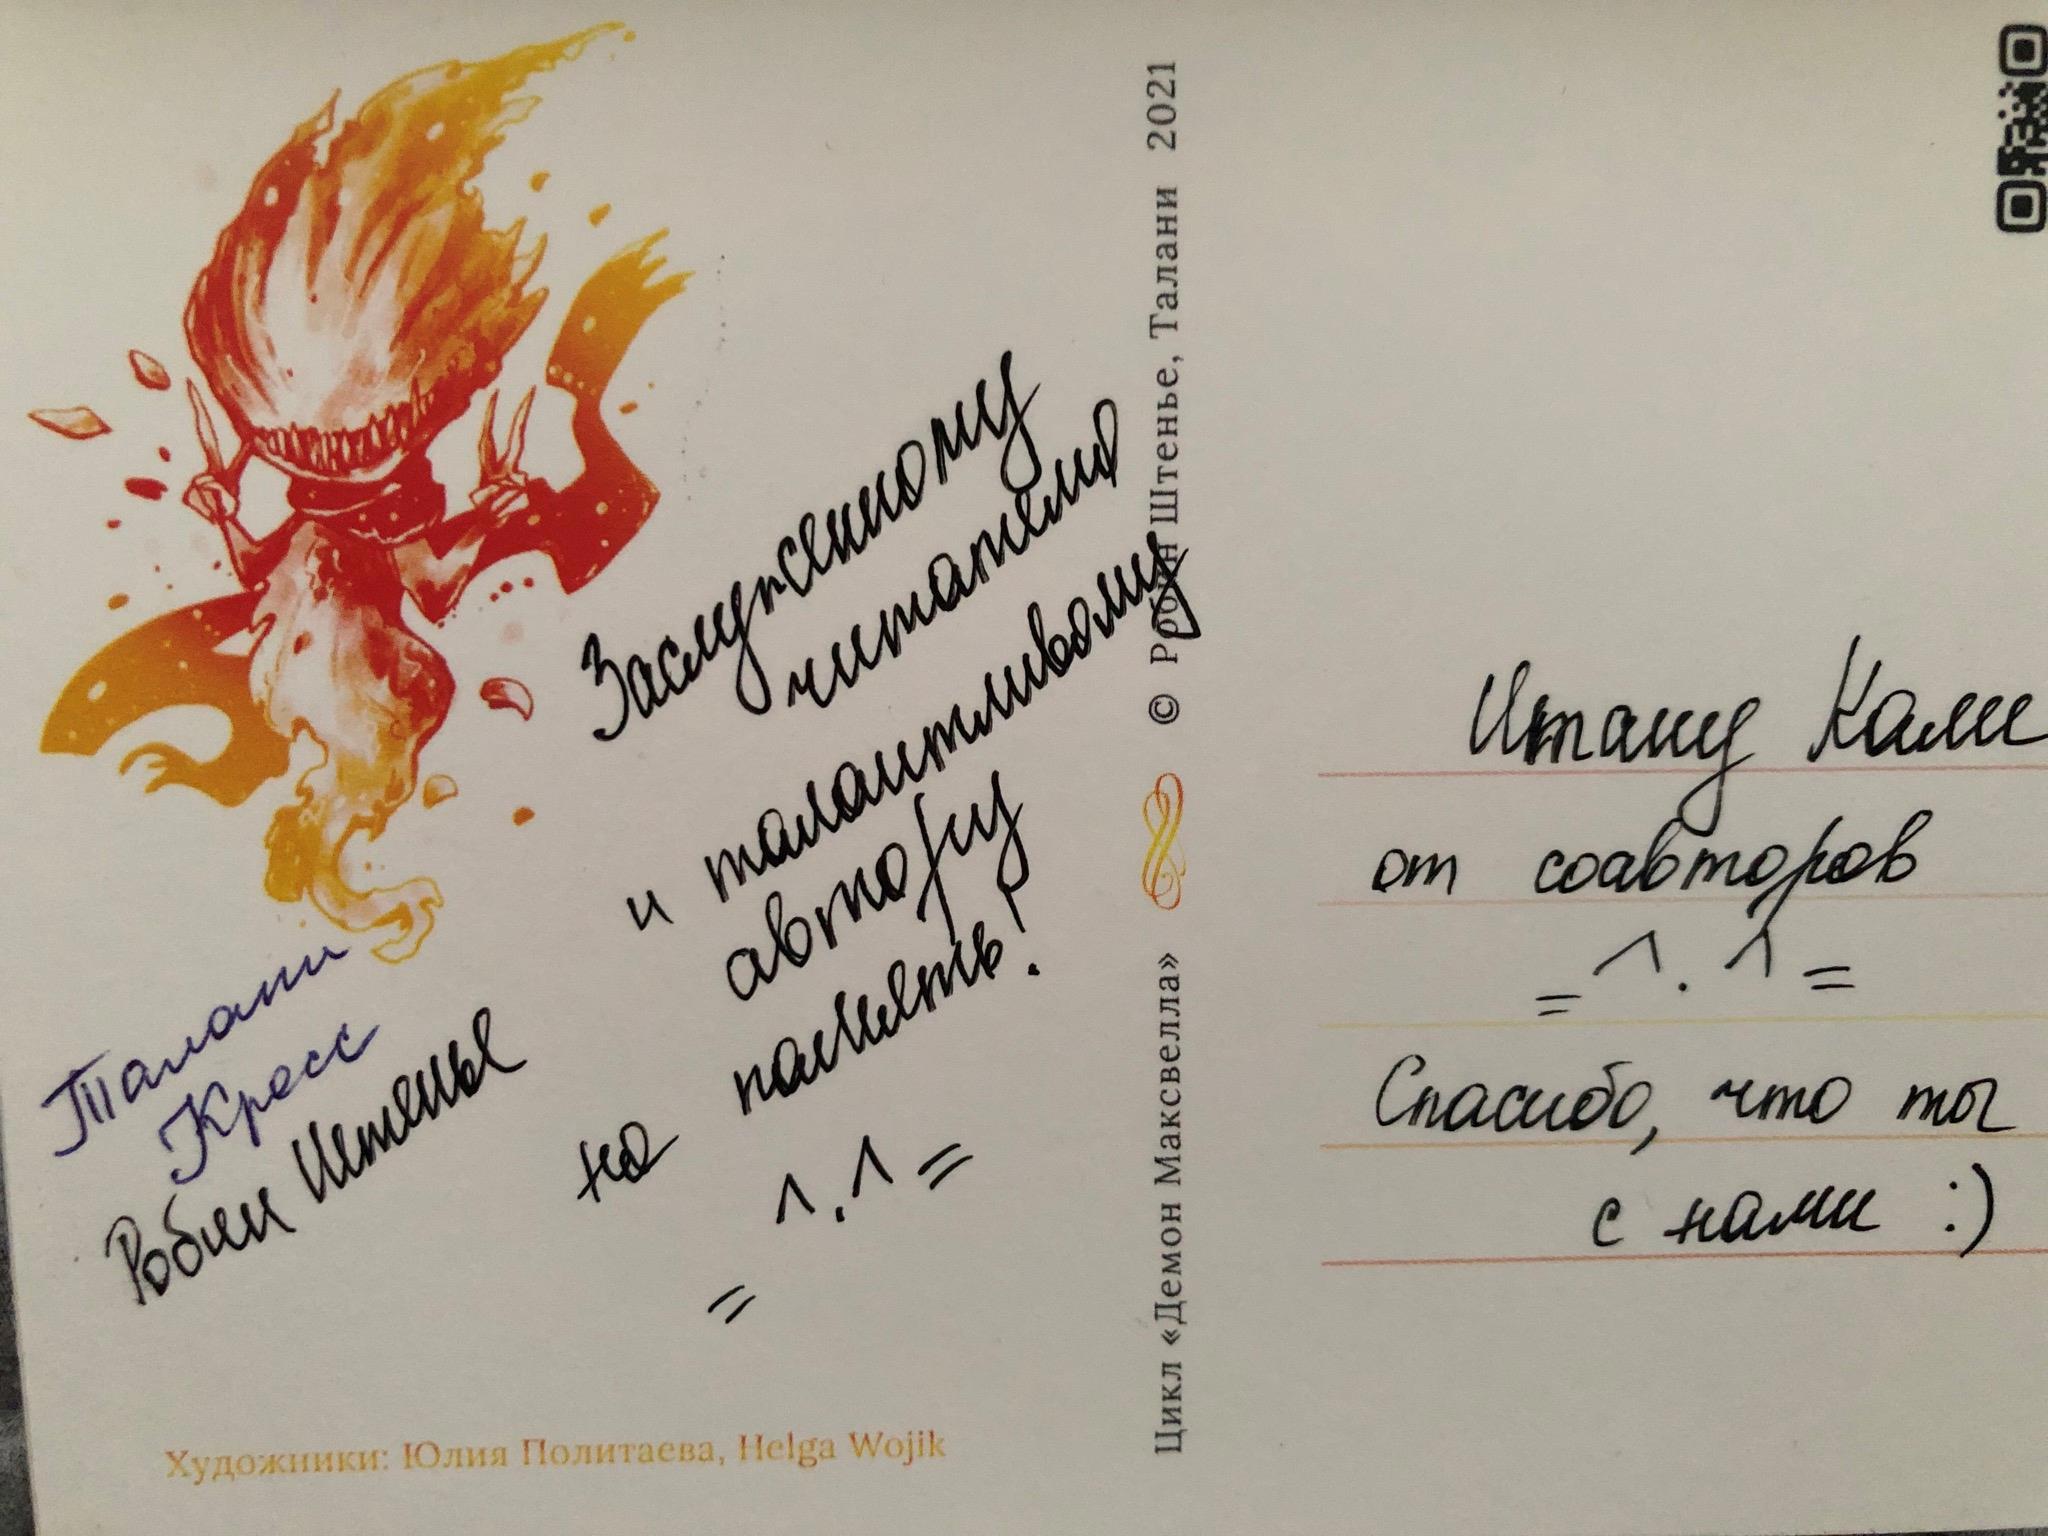 Заслуженному
читателю
и талантливому
автору
на память!
= ^.^ =
Талани
Кросс
Робин Штенье
Художники: Юлия Политаева, Helga Wojik
Цикл «Демон Максвелла» © Робин Штенье, Талани 2021
Итану Коли
от соавторов
= ^.^ =
Спасибо, что ты
с нами :)